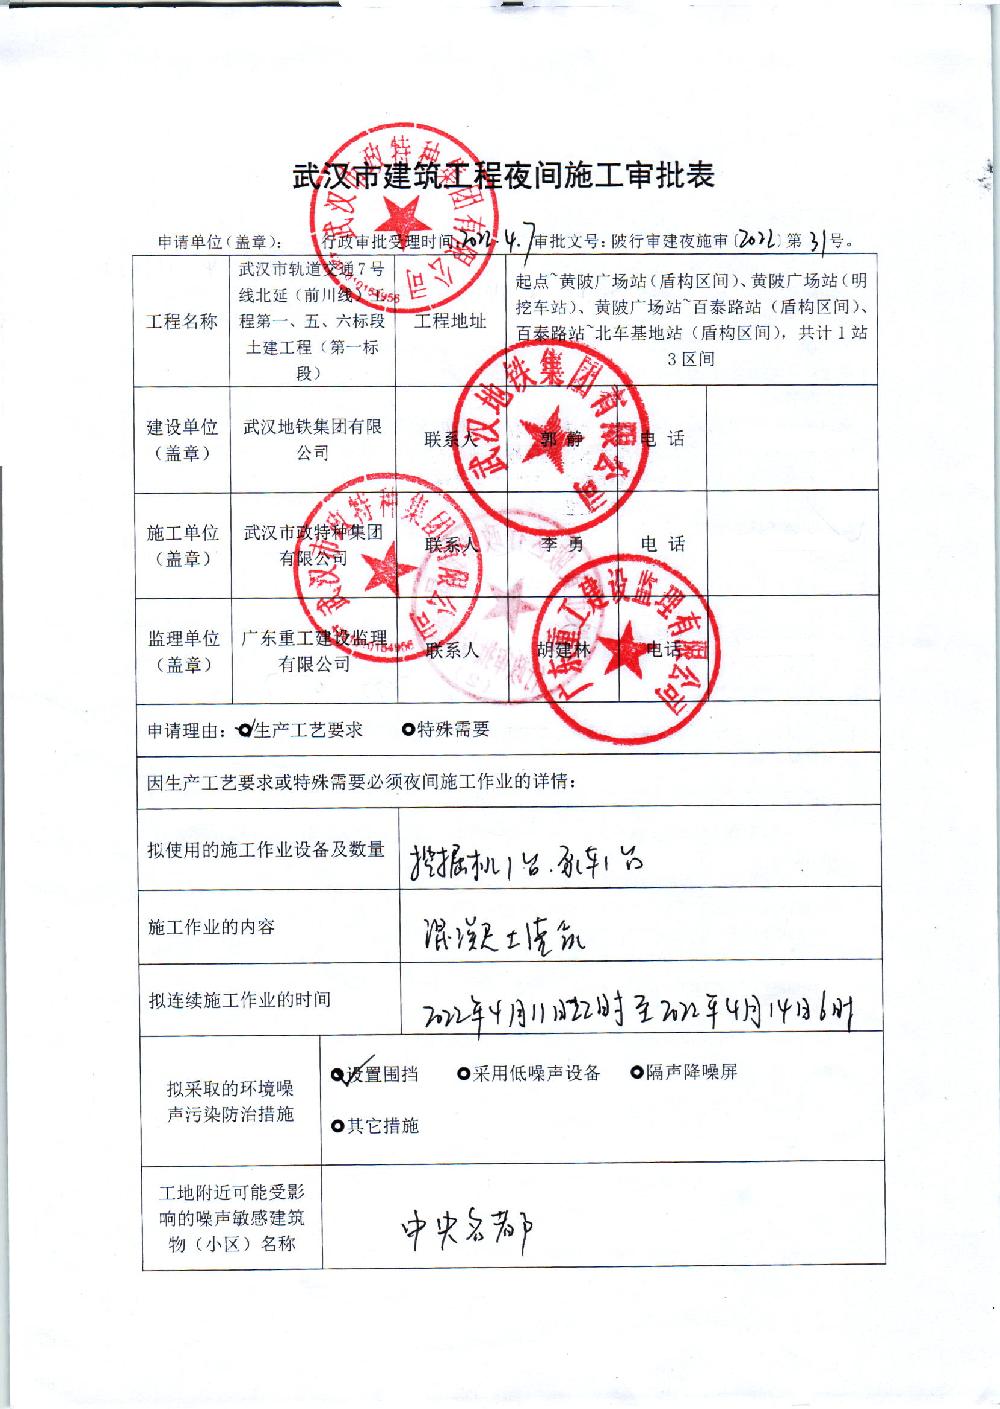 武汉市建筑工程夜间施工审批表
申请单位(盖章): 行政审批受理时间:2022.4.7 审批文号:陂行审建夜施审〔2022〕第31号。
工程名称
武汉市轨道交通7号
线北延(前川线)工
程第一、五、六标段
土建工程(第一标
段)
工程地址
起点~黄陂广场站(盾构区间)、黄陂广场站(明
挖车站)、黄陂广场站~百泰路站(盾构区间)、
百泰路站~北车基地站(盾构区间),共计1站
3区间
建设单位
(盖章)
武汉地铁集团有限
公司
联系人
郭 静
电 话
施工单位
(盖章)
武汉市政特种集团
有限公司
联系人
李 勇
电 话
监理单位
(盖章)
广东重工建设监理
有限公司
联系人
胡建林
电话
申请理由: 生产工艺要求 特殊需要
因生产工艺要求或特殊需要必须夜间施工作业的详情:
拟使用的施工作业设备及数量
挖掘机1台.泵车1台
施工作业的内容
混凝土浇筑
拟连续施工作业的时间
2022年4月11日22时至2022年4月14日6时
拟采取的环境噪
声污染防治措施
设置围挡 采用低噪声设备 隔声降噪屏
其它措施
工地附近可能受影
响的噪声敏感建筑
物(小区)名称
中央名都
武汉市政特种集团有限公司
武汉地铁集团有限公司
武汉市政特种集团有限公司
广东重工建设监理有限公司